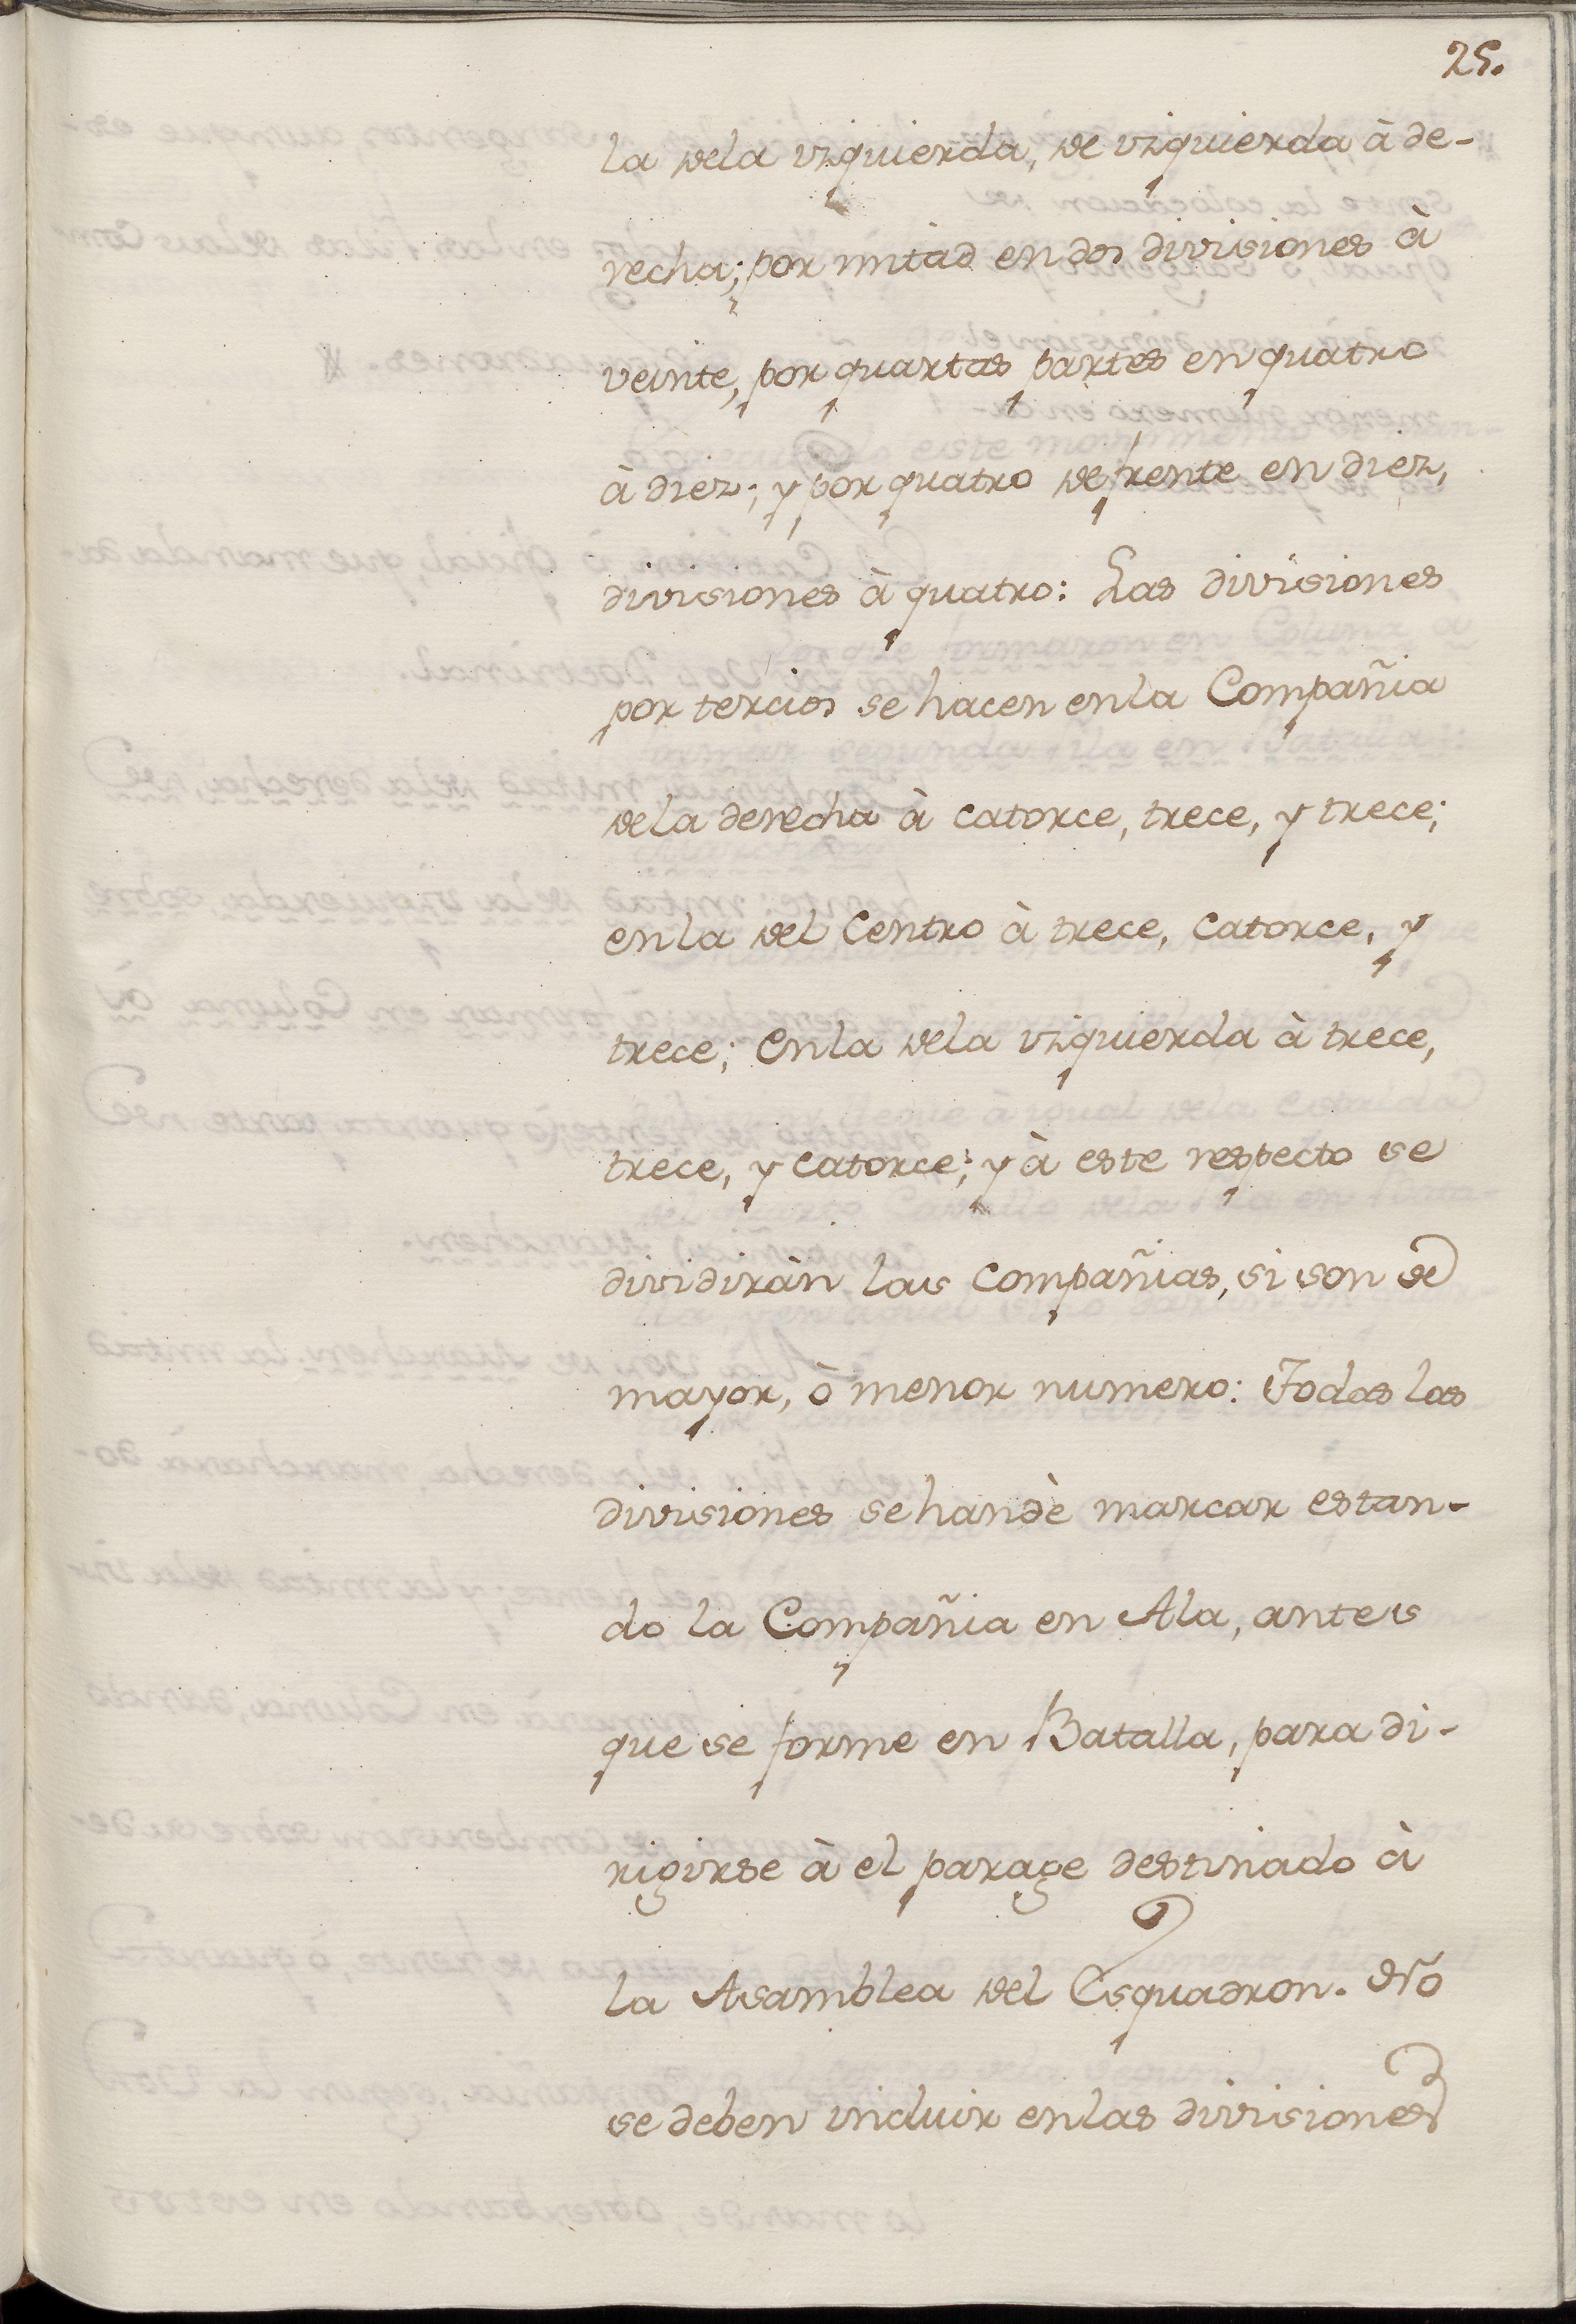 25.
la dela izquierda, de izquierda à de-
recha; por mitad en dos divisiones à
veinte, por quartas partes en quatro
à diez; y por quatro de frente en diez,
divisiones à quatro: Las divisiones
por tercios se hacen enla Compañia
dela derecha à catorce, trece, y trece;
enla del Centro à trece, catorce, y
trece; enla dela izquierda à trece,
trece, y catorce; y à este respecto se
dividiràn las Compañias, si son de
mayor, ò menor numero: Todas las
divisiones se handè marcar estan-
do la Compañia en Ala, antes
que se forme en Batalla, para di-
rigirse à el parage destinado à
la Asamblea del Esquadron. No
se deben incluir enlas divisiones